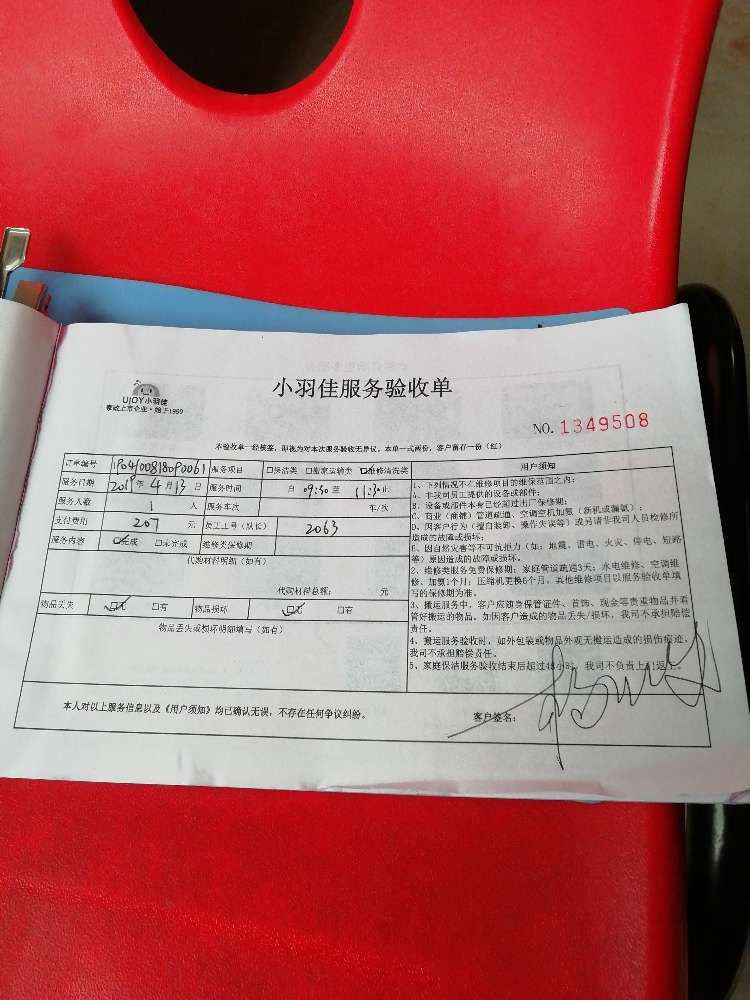 小羽佳服务验收单
UJOY小羽佳
家政上市企业·始于1999
NO. 1349508
本验收单一经核签，即视为对本次服务验收无异议，本单一式两份，客户留存一份（红）
订单编号 服务项目 口保洁类 口搬家运输类 口维修清洗类
服务日期 2019年4月13日 服务时间 自 09:30 至 11:30止
服务人数 1 人 服务车次 车/次
支付费用 207 元 员工工号（队长） 2063
服务内容 口完成 口未完成 维修类保修期
代购材料明细（如有）
代购材料总额： 元
物品丢失 口无 口有 物品损坏 口无 口有
物品丢失或损坏明细填写（如有）
用户须知
1、下列情况不在维修项目的维保范围之内：
A、非我司员工提供的设备或部件；
B、设备或部件本身已经超过出厂保修期；
C、商业（商铺）管道疏通、空调空机加氨（新机或漏氨）；
D、因客户行为（擅自装卸、操作失误等）或另请非我司人员检修所
造成的故障或损坏；
E、因自然灾害等不可抗拒力（如：地震、雷电、火灾、停电、短路
等）原因造成的故障或损坏。
2、维修类服务免费保修期：家庭管道疏通3天；水电维修、空调维
修、加氨1个月；压缩机更换6个月，其他维修项目以服务验收单填
写的保修期为准。
3、搬运服务中，客户应随身保管证件、首饰、现金等贵重物品并看
管好搬运的物品。如因客户造成的物品丢失/损坏，我司不承担赔偿
责任。
4、搬运服务验收时，如外包装或物品外观无搬运造成的损伤痕迹，
我司不承担赔偿责任。
5、家庭保洁服务验收结束后超过48小时，我司不负责上门返工。
本人对以上服务信息以及《用户须知》均已确认无误，不存在任何争议纠纷。
客户签名：